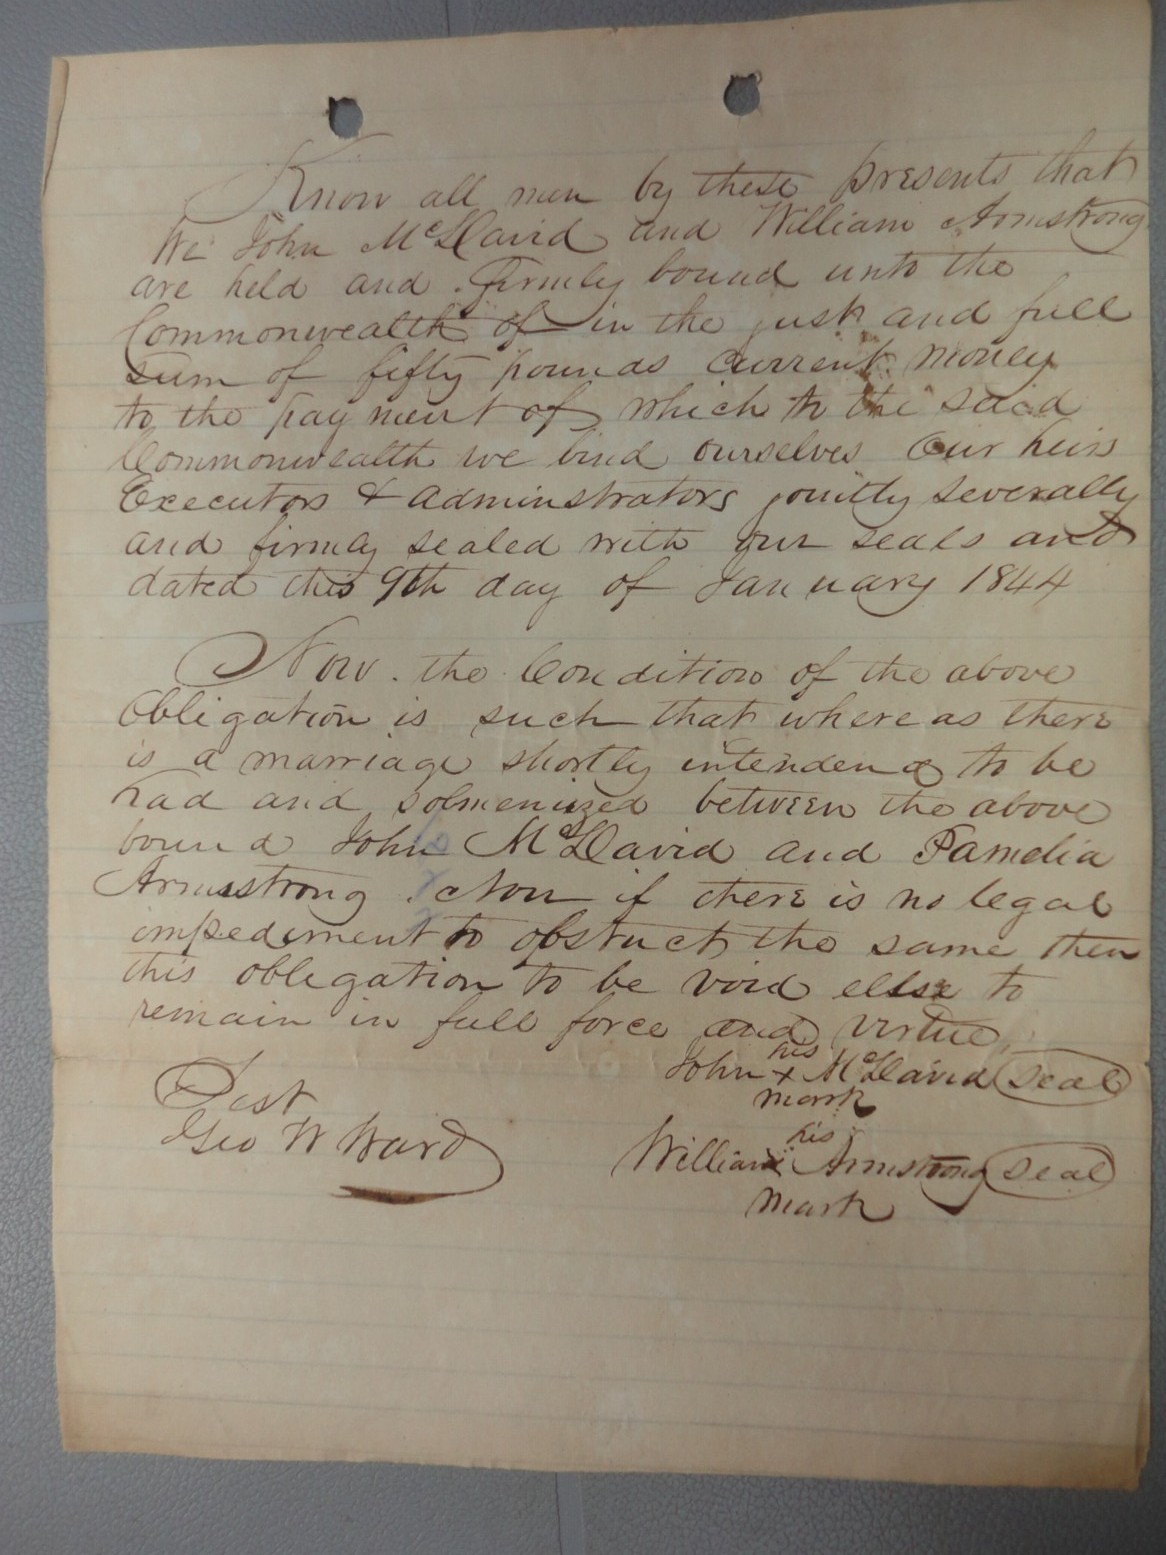 Know all men by these presents that
We John McDavid and William Armstrong
are held and Firmly bound unto the
Commonwealth of in the just and full
sum of fifty pounds current money
to the payment of which to the said
Commonwealth we bind ourselves Our heirs
Executors & adminstrators jointly severally
and firmly sealed with our seals and
dated this 9th day of January 1844
Now the Condition of the above
Obligation is such that where as there
is a marriage shortly intended to be
had and solmenized between the above
bound John McDavid and Pamelia
Armstrong. Now if there is no legal
impediment to obstruct the same then
this obligation to be void else to
remain in full force and virtue
his
John x McDavid Seal
mark
Test
Geo W Ward
his
William x Armstrong Seal
mark